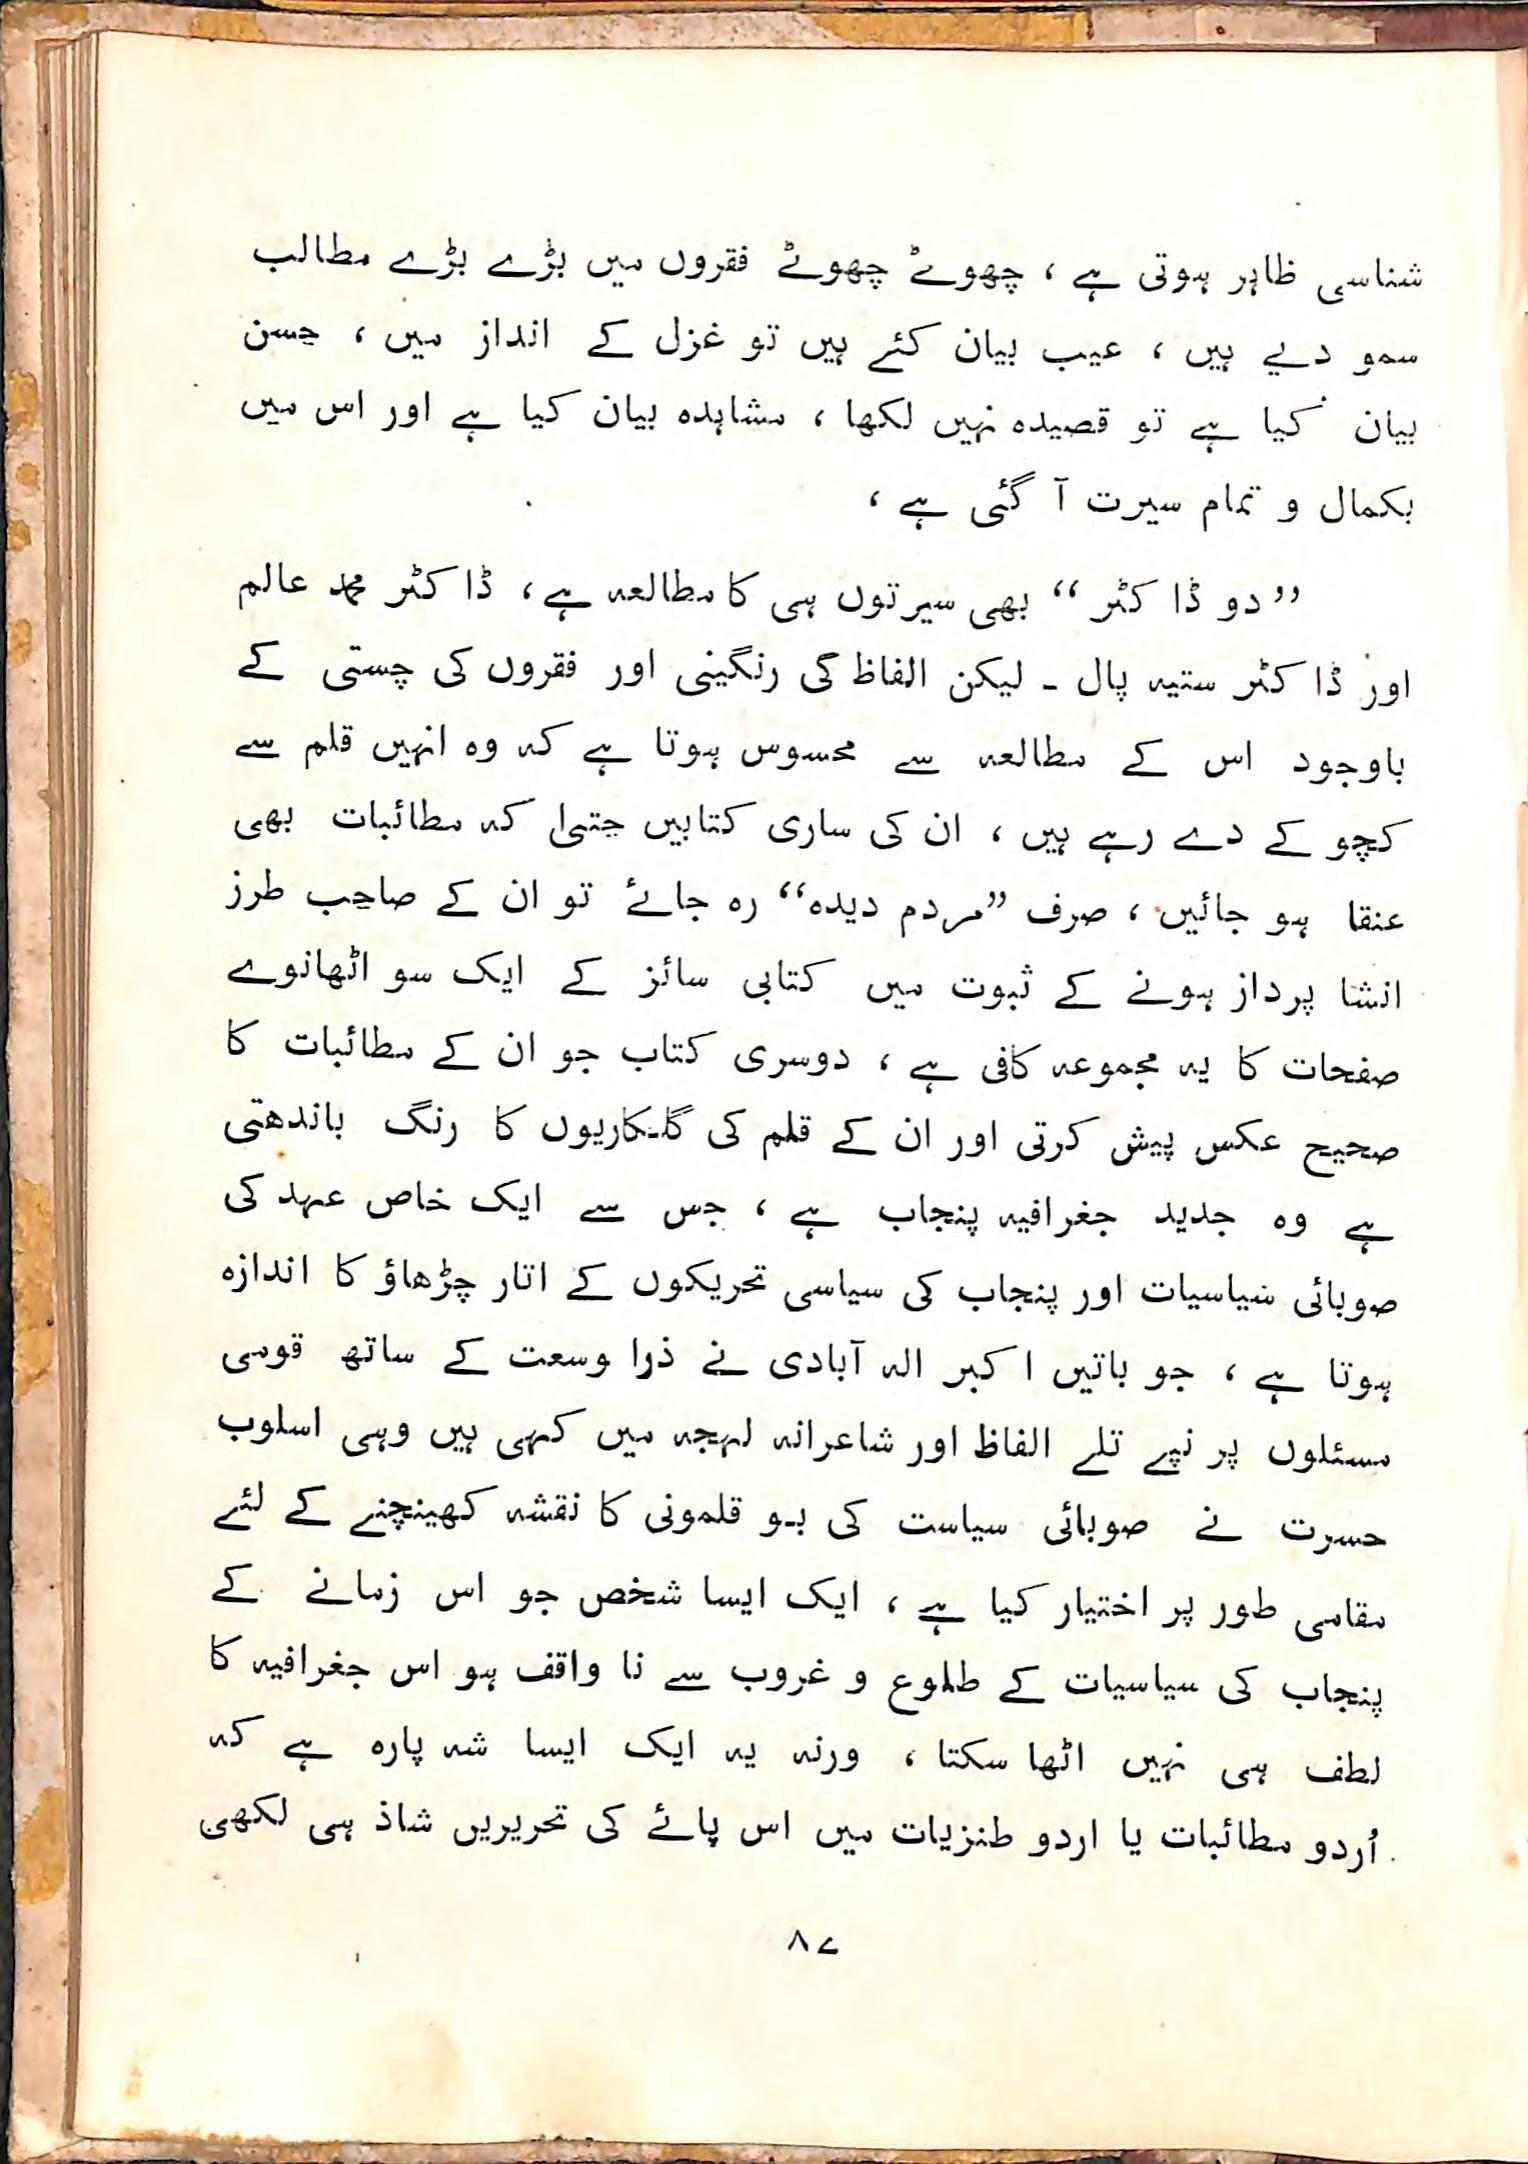 شناسی ظاہر ہوتی ہے ، چھوٹے چھوٹے فقروں میں بڑے بڑے مطالب
سمو دیے ہیں ، عیب بیان کئے ہیں تو غزل کے انداز میں ، حسن
بیان کیا ہے تو قصیدہ نہیں لکھا ، مشاہدہ بیان کیا ہے اور اس میں
بکمال و تمام سیرت آ گئی ہے ،
”دو ڈاکٹر“ بھی سیرتوں ہی کا مطالعہ ہے ، ڈاکٹر محمد عالم
اور ڈاکٹر ستیہ پال ۔ لیکن الفاظ کی رنگینی اور فقروں کی چستی کے
باوجود اس کے مطالعہ سے محسوس ہوتا ہے کہ وہ انہیں قلم سے
کچو کے دے رہے ہیں ، ان کی ساری کتابیں حتیٰ کہ مطائبات بھی
عنقا ہو جائیں ، صرف ”مردم دیدہ“ رہ جائے تو ان کے صاحب طرز
انشا پرداز ہونے کے ثبوت میں کتابی سائز کے ایک سو اٹھانوے
صفحات کا یہ مجموعہ کافی ہے ، دوسری کتاب جو ان کے مطائبات کا
صحیح عکس پیش کرتی اور ان کے قلم کی گلکاریوں کا رنگ باندھتی
ہے وہ جدید جغرافیہ پنجاب ہے ، جس سے ایک خاص عہد کی
صوبائی سیاسیات اور پنجاب کی سیاسی تحریکوں کے اتار چڑھاؤ کا اندازہ
ہوتا ہے ، جو باتیں اکبر الہ آبادی نے ذرا وسعت کے ساتھ قومی
مسئلوں پر نپے تلے الفاظ اور شاعرانہ لہجہ میں کہی ہیں وہی اسلوب
حسرت نے صوبائی سیاست کی بو قلمونی کا نقشہ کھینچنے کے لئے
مقامی طور پر اختیار کیا ہے ، ایک ایسا شخص جو اس زمانے کے
پنجاب کی سیاسیات کے طلوع و غروب سے نا واقف ہو اس جغرافیہ کا
لطف ہی نہیں اٹھا سکتا ، ورنہ یہ ایک ایسا شہ پارہ ہے کہ
اُردو مطائبات یا اردو طنزیات میں اس پائے کی تحریریں شاذ ہی لکھی
۸۷